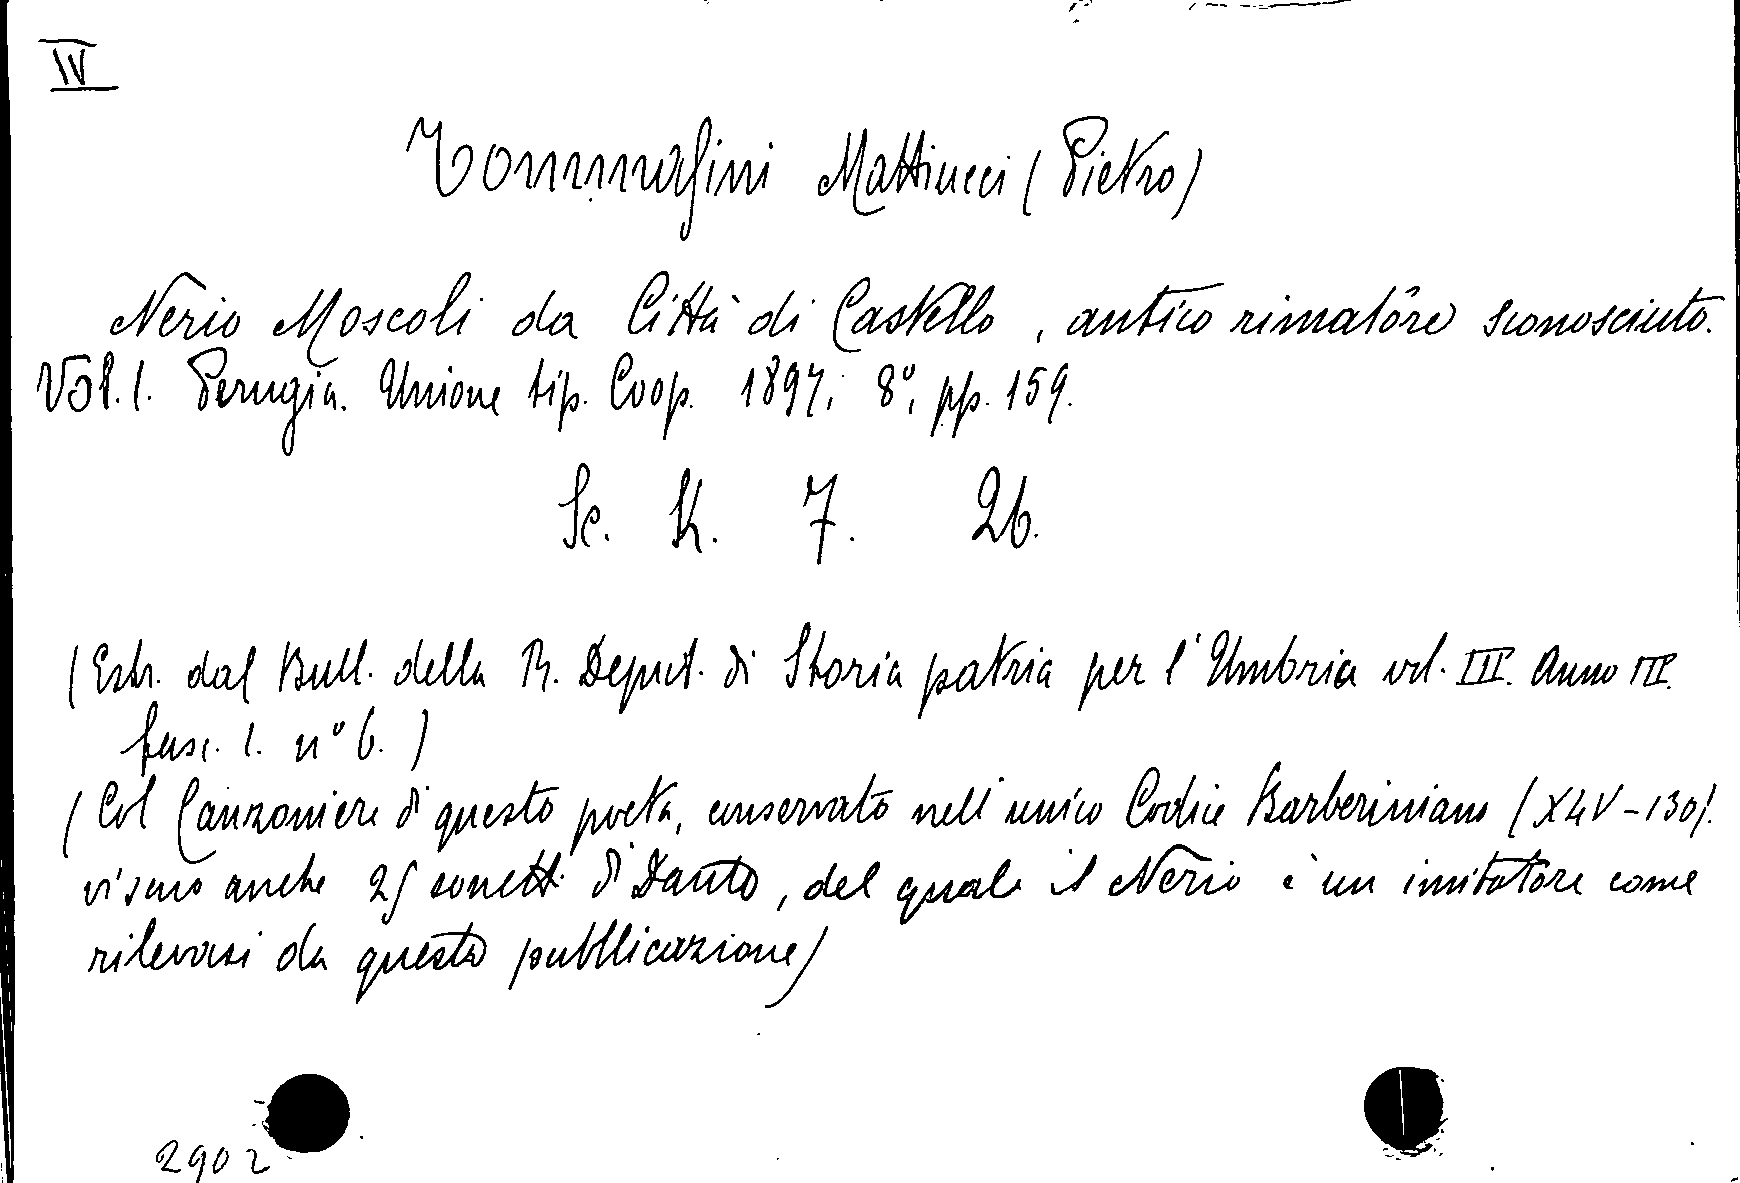 IV
Tommasini Mattiucci (Pietro)
Nerio Moscoli da Città di Castello, antico rimatore sconosciuto.
Vol. 1. Perugia. Unione tip. Coop. 1897, 8°, pp. 159.
Sc. K. 7. 26.
(Estr. dal Bull. della R. Deput. di Storia patria per l'Umbria vol. III. Anno III.
fasc. 1. n° 6.)
(Col Canzoniere di questo poeta, conservato nell'unico Codice Barberiniano (XLV-130).
vi sono anche 25 sonetti di Dante, del quale il Nerio è un imitatore come
rilevasi da questa pubblicazione)
2902